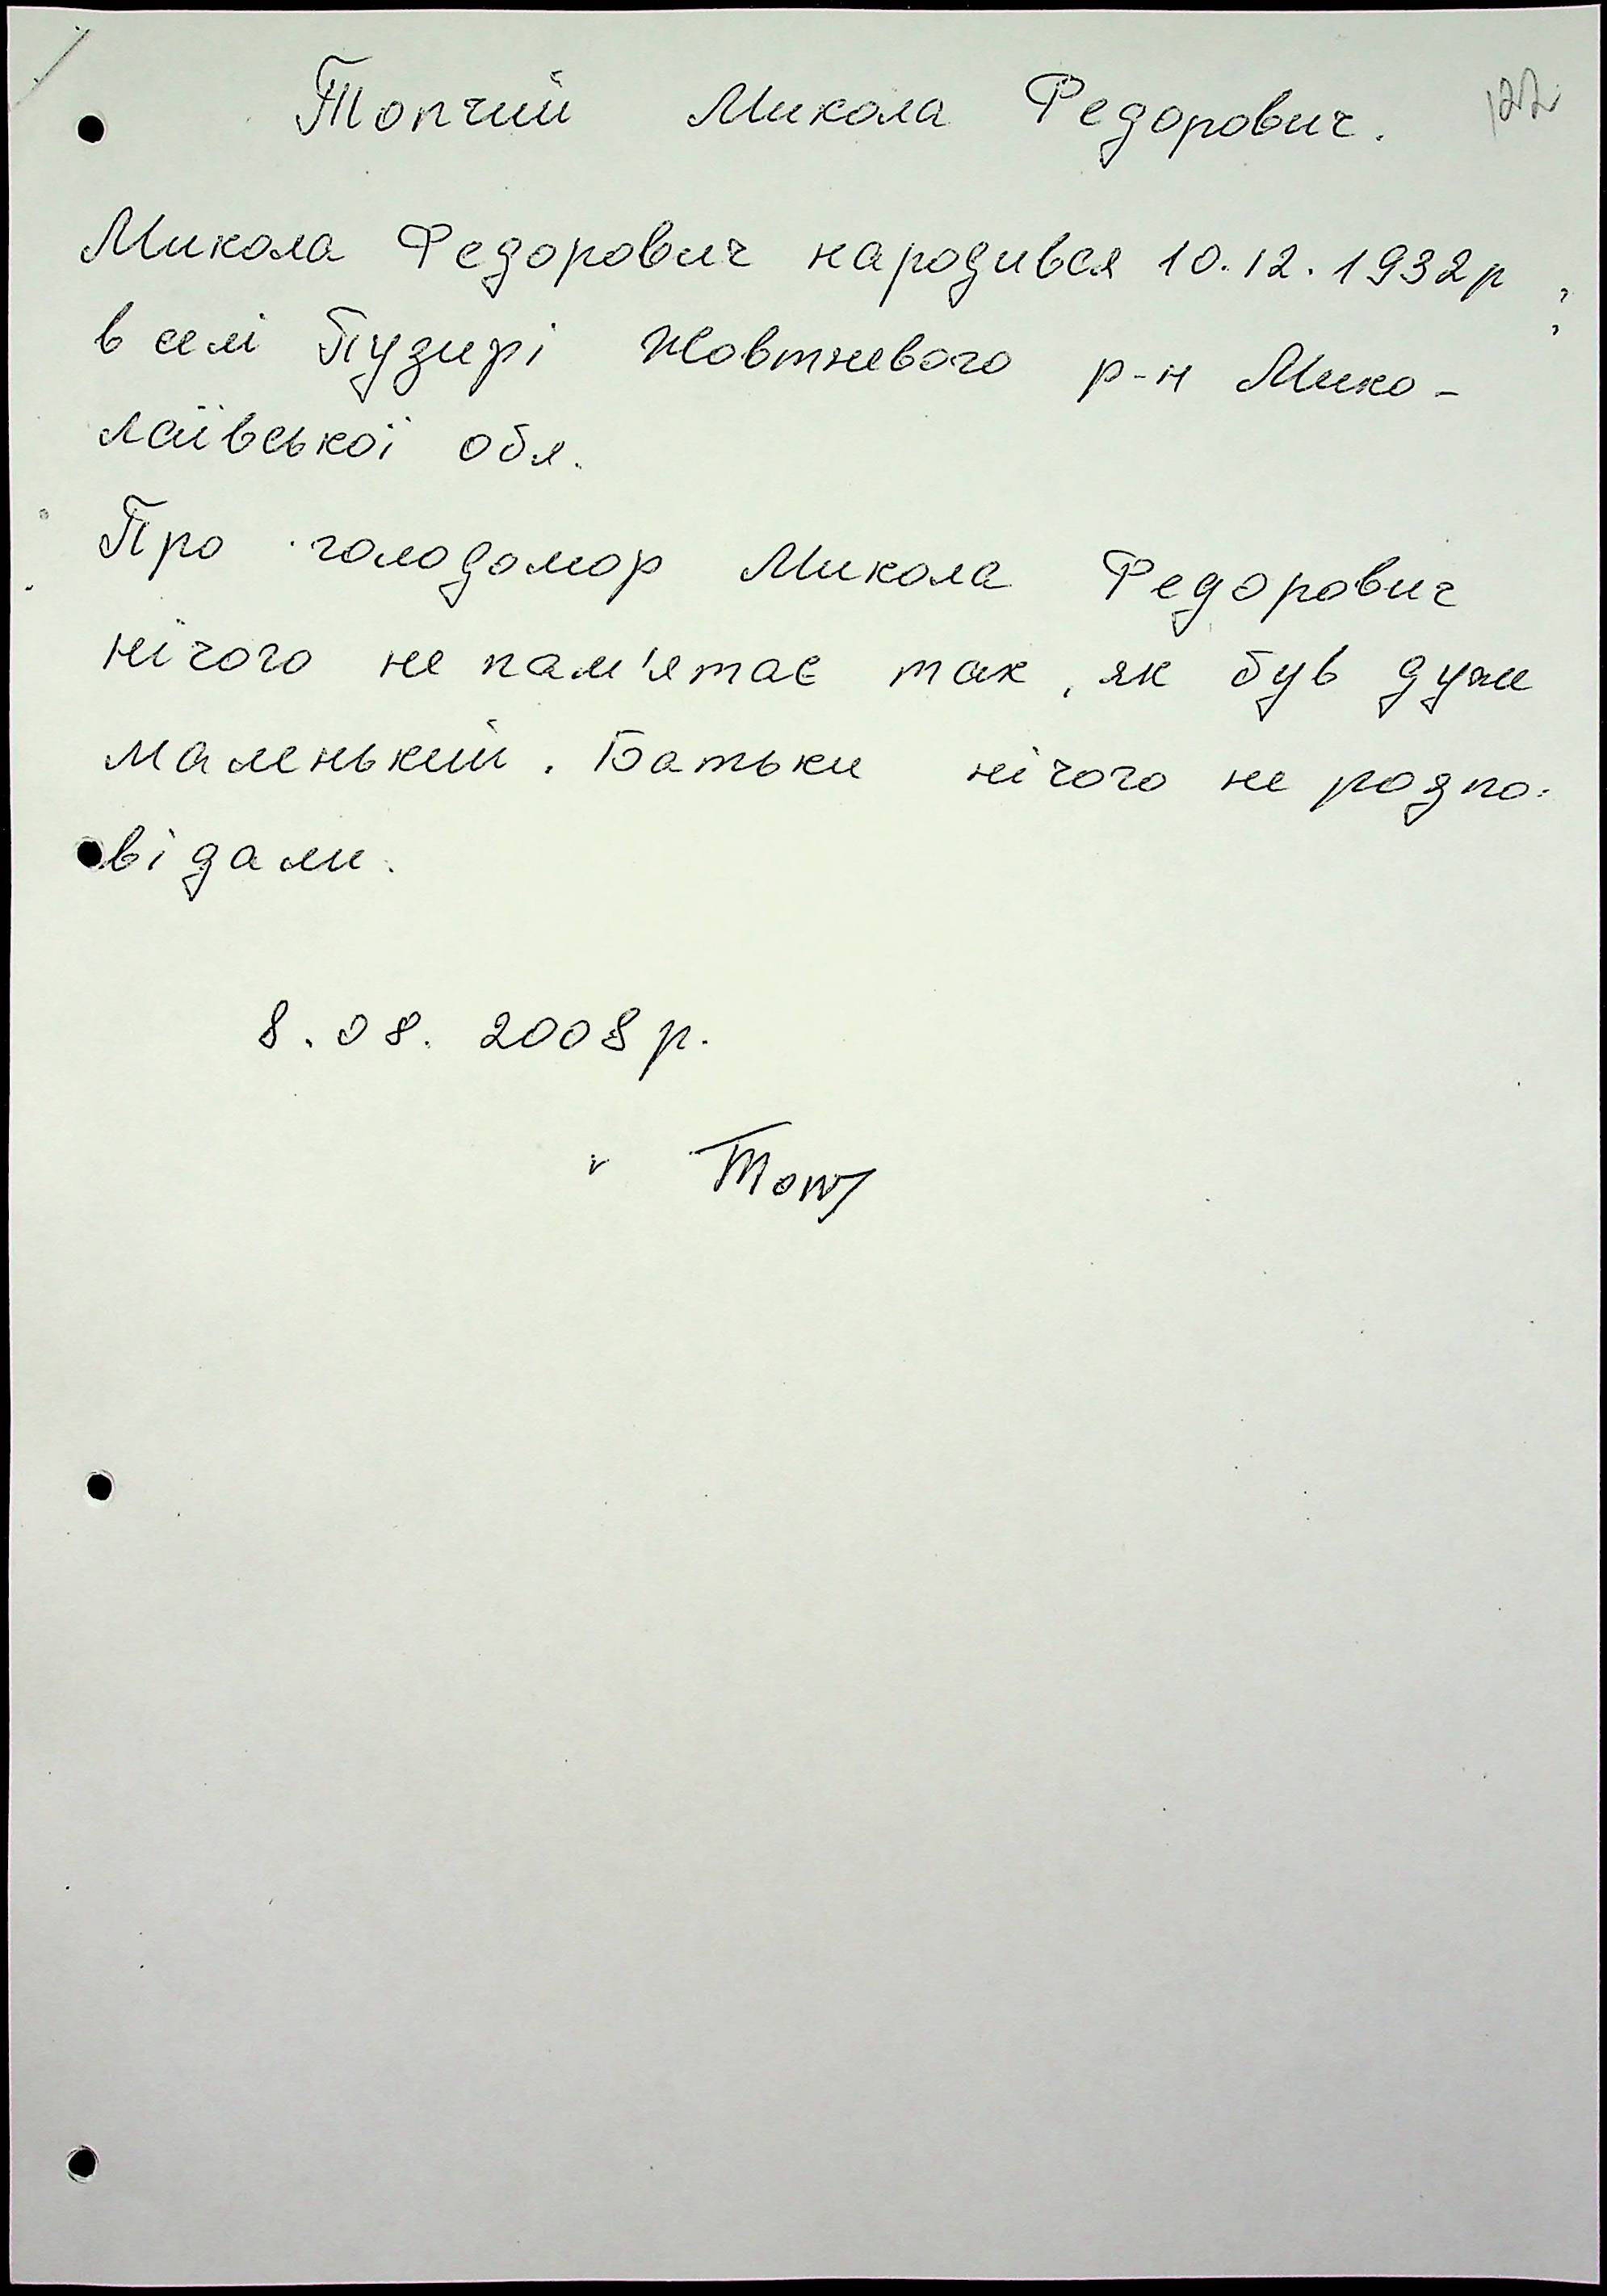 122
Топчий Микола Федорович.
Микола Федорович народився 10.12.1932р
в селі Пузирі Жовтневого р-н Мико-
лаївської обл.
Про голодомор Микола Федорович
нічого не пам'ятає так, як був дуже
маленький. Батьки нічого не розпо-
відали.
8.08.2008р.